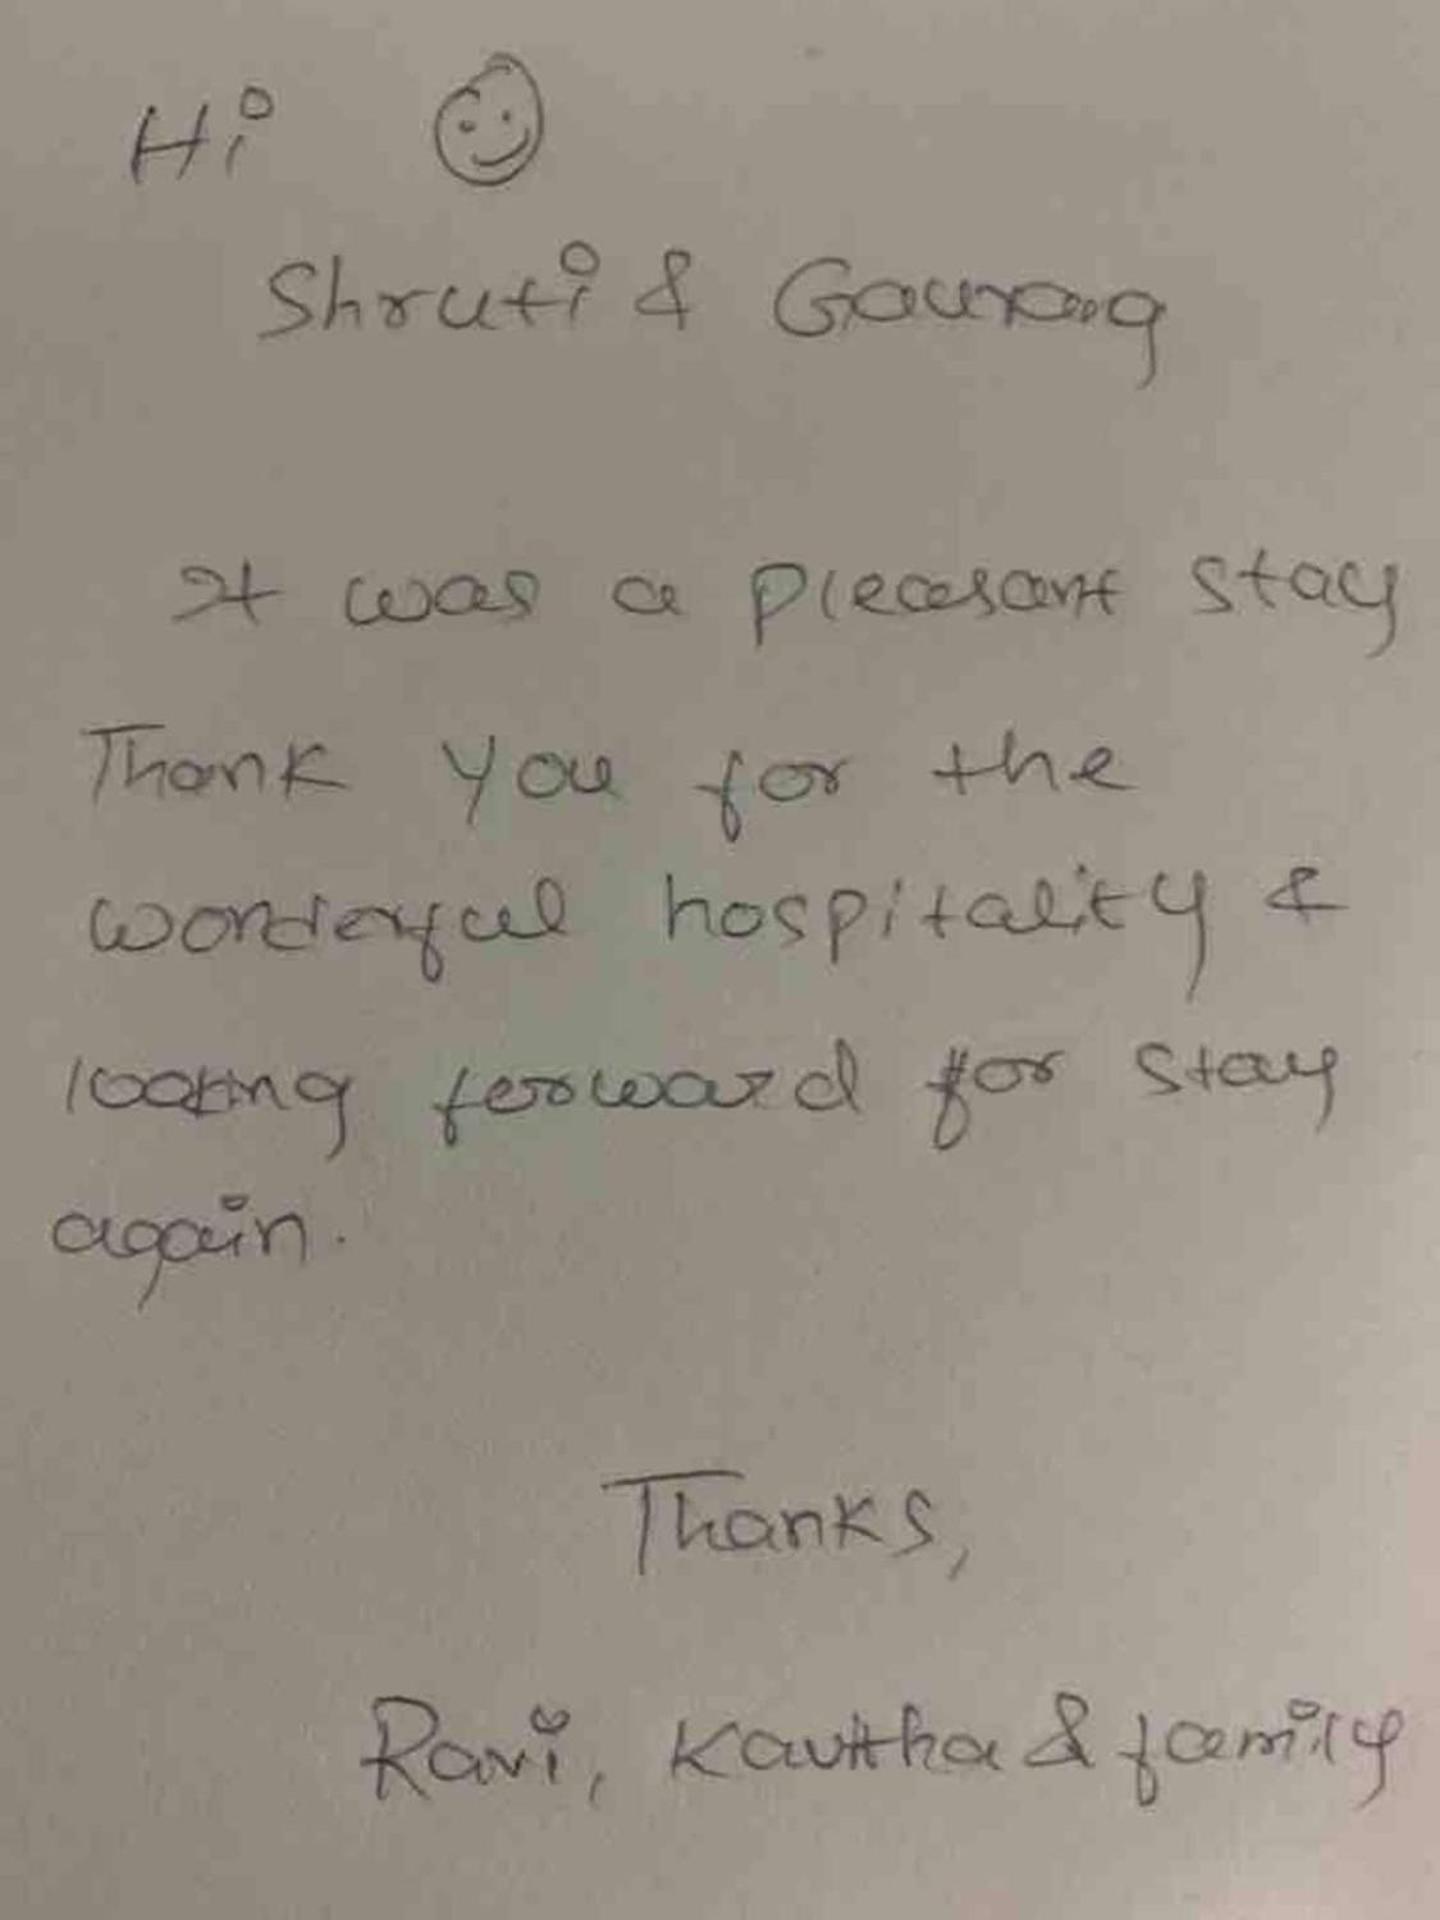 Hi
Shruti & Gaurang
It was a pleasant stay
Thank you for the
wonderful hospitality &
looking forward for stay
again.
Thanks,
Ravi, Kavitha & family